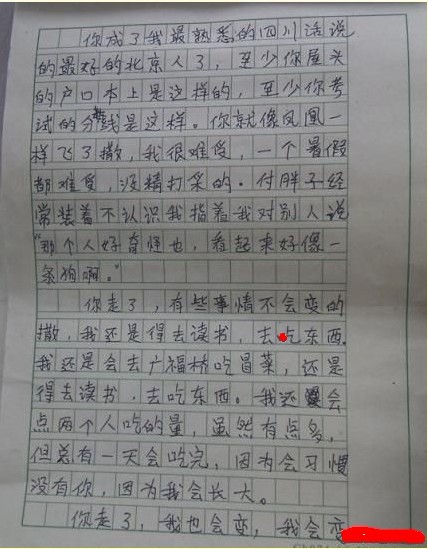 你成了我最熟悉的四川话说
的最好的北京人了，至少你屋头
的户口本上是这样的，至少你考
试的分数线是这样。你就像凤凰一
样飞了撒，我很难受，一个暑假
都难受，没精打采的。付胖子经
常装着不认识我指着我对别人说
“那个人好奇怪也，看起来好像一
条狗啊。”
你走了，有些事情不会变的
撒，我还是得去读书，去吃东西。
我还是会去广福桥吃冒菜，还是
得去读书，去吃东西。我还会
点两个人吃的量，虽然有点多，
但总有一天会吃完，因为会习惯
没有你，因为我会长大。
你走了，我也会变，我会变